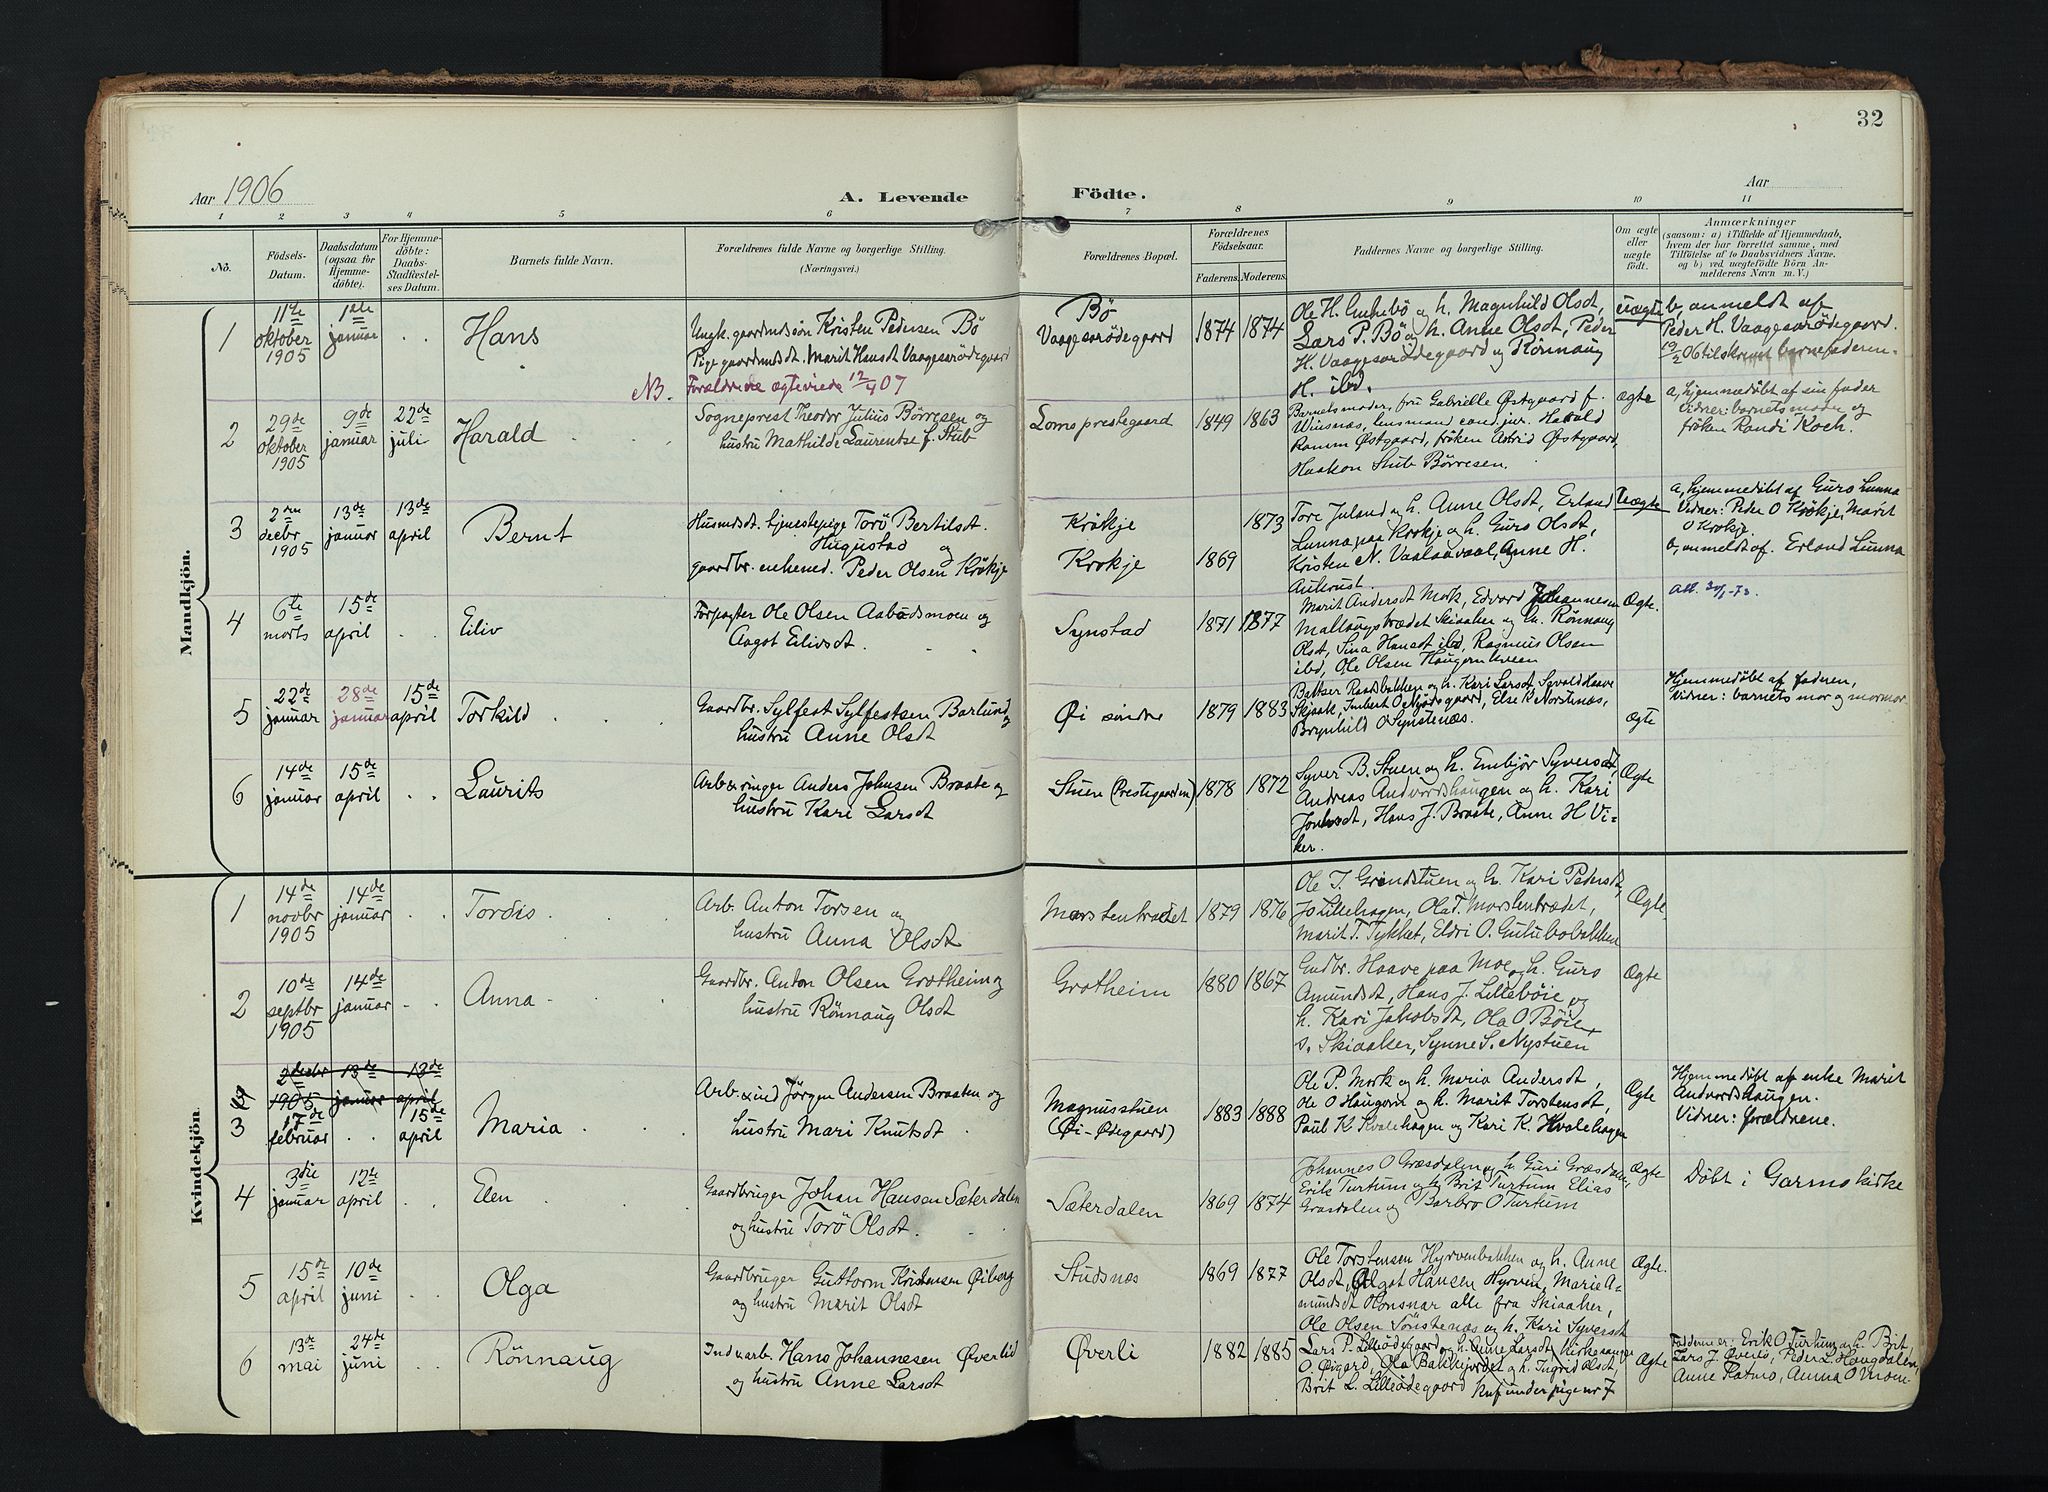 32
Aar 1906
A. Levende
Födte.
Aar
1 2 3 4 5 6 7 8 9 10 11
No.
Födsels-
Datum.
Daabsdatum
(ogsaa for
Hjemme-
döbte).
For Hjemme-
döbte:
Daabs-
Stadfæstel-
ses Datum.
Barnets fulde Navn.
Forældrenes fulde Navne og borgerlige Stilling.
(Næringsvei.)
Forældrenes Bopæl.
Forældrenes
Födselsaar.
Faderens. Moderens.
Faddernes Navne og borgerlige Stilling.
Om ægte
eller
uægte
födt.
Anmærkninger
(saasom: a) i Tilfælde af Hjemmedaab,
hvem der har forrettet samme, med
Tilföielse af to Daabsvidners Navne,
og b) ved uægtefödte Börn An-
melderens Navn m. V.)
Mandkjön.
1
11te
oktober
1905
1ste
januar
Hans
Ungk. gaardmdsön Kristen Pedersen Bö
Pige gaardmdsdt. Marit Hansdt Vaagesarödegaard
NB. Forældrene ægteviede 12/4 07
Bö
Vaagesarödegaard
1874 1874
Ole H. og h. Magnhild Olsdt,
Lars P. Bö og h. Anne Olsdt, Peder
H. Vaagesarödegaard og Rönnaug
H. ibd.
uægte
b, anmeldt af
Peder H. Vaagesarödegaard.
19/2 06 tilskrevet barnefaderen.
2
29de
oktober
1905
9de
januar
22de
juli
Harald
Sogneprest Theodor Julius Börresen og
hustru Mathilde Laurentse f. Stub
Loms prestegaard
1849 1863
Barnets moder, fru Gabrielle Østgaard f.
Winsnes, lensmand cand. jur. Harald
Ramm Østgaard, fröken Astrid Østgaard,
Haakon Stub Börresen.
ægte
a, hjemmedöbt af sin fader
Vidner: barnets moder og
fröken Randi Koch.
3
2den
decbr
1905
13de
januar
13de
april
Bernt
Husmdsdt. tjenestepige Torö Bertilsdt.
Hugustad og
gaardbr. enkemd. Peder Olsen Krökje
Krökje
Krokje
1873
1869
Tore Juland og h. Anne Olsdt, Erland
Lunna paa Krokje og h. Guro Olsdt,
Kristen N. Vaalaavaal, Anne H.
Aukrust.
Uægte
a, hjemmedöbt af Guro Lunna
Vidner: Peder O Krökje, Marit
O Krokje
b, anmeldt af Erland Lunna
4
6te
marts
15de
april
Eiliv
Forpagter Ole Olsen Aabudsmoen og
Aagot Eilivsdt.
Synstad
1871 1877
Marit Andersdt Mork, Edvard Johannesen
Skiaaker og h. Rönnaug
Olsdt, Sina Hansdt ibd, Rasmus Olsen
ibd, Ole Olsen
Ægte.
5
22de
januar
28de
januar
15de
april
Torkild
Gaardbr. Sylfest Sylfestsen Barlund og
hustru Anne Olsdt
Øi söndre
1879 1883
Baltser Raadsbakken og h. Kari Larsdt Syvald Haave
Skjaak, Imbert O Nyörsgaard, Else K Norstenæs,
Brynhild O Synstenæs.
ægte
Hjemmedöbt af faderen,
Vidner: barnets mor og mormor.
6
14de
januar
15de
april
Laurits
Arb. &ringer Anders Johnsen Braate og
hustru Kari Larsdt
Stuen (Prestegaarden)
1878 1872
Syver B. Stuen og h. Embjör Syversdt,
Andreas Andvordshaugen og h. Kari
Johnsdt, Hans J. Braate, Anne H Vi-
ker.
Ægte
Kvindekjön.
1
14de
novbr
1905
14de
januar
Tordis
Arb. Anton Torsen og
hustru Anna Olsdt
Morstentrædet
1879 1876
Ole T. Grindstuen og h. Kari Pedersdt,
Jo Lillehagen, Ola T. Morstentrædet,
Marit T. Tykket, Eldri O. Gulubobakken
Ægte
2
10de
septbr
1905
14de
januar
Anna
Gaardbr. Anton Olsen Grotheim og
hustru Rönnaug Olsdt
Grotheim
1880 1867
Gudbr. Haave paa Moe og h. Guro
Amundsdt, Hans J. Lilleböie og
h. Kari Jakobsdt, Ola O Böie,
s. Skiaaker, Synne S. Nystuen
Ægte
2 decbr
1905
13de
januar
13de
april
3
17de
februar
15de
april
Maria
Arb. &ind Jörgen Andersen Braaten og
hustru Mari Knutsdt
Magnusstuen
(Öi-Ödegaard)
1883 1888
Ole P. Mork og h. Maria Andersdt,
Ole O Haugom og h. Marit Torstensdt,
Paul K Kvalehagen og Kari K. Hvalehagen
Ægte
Hjemmedöbt af enke Marit
Andvordshaugen.
Vidner: forældrene.
4
3die
januar
12te
april
Elen
Gaardbruger Johan Hansen Sæterdalen
og hustru Torö Olsdt.
Sæterdalen
1869 1874
Johannes O Græsdalen og h. Guri Græsdalen,
Erik Turtum og h. Brit Turtum, Elias
Græsdalen og Barbro O Turtum
Ægte
Döbt i Garmo kirke
5
15de
april
10de
juni
Olga
Gaardbruger Guttorm Kristensen Öiberg
og hustru Marit Olsdt
Studsnæs
1869 1877
Ole Torstensen Hyrvenbakken og h. Anne
Olsdt, Hansen Hyrven, Marie A-
mundsdt Honsnar alle fra Skiaaker,
Ole Olsen Sönstenæs og h. Kari Syversdt
Ægte.
6
13de
mai
24de
juni
Rönnaug
Ind. arb. Hans Johannesen Øverlid
og hustru Anne Larsdt
Øverli
1882 1885
Lars P. Lillöödegaard og h. Anne Larsdt, kirkesanger
O. Öigard, Ola Bakkjordet og h. Ingrid Olsdt,
Brit L. Lillöödegaard under pige nr 7
Ægte
Fadderne er: Erik O Turtum og h. Brit,
Lars J. Øverli, Peder L. Hougdalen,
Anne Ratmo, Anna O Mom-